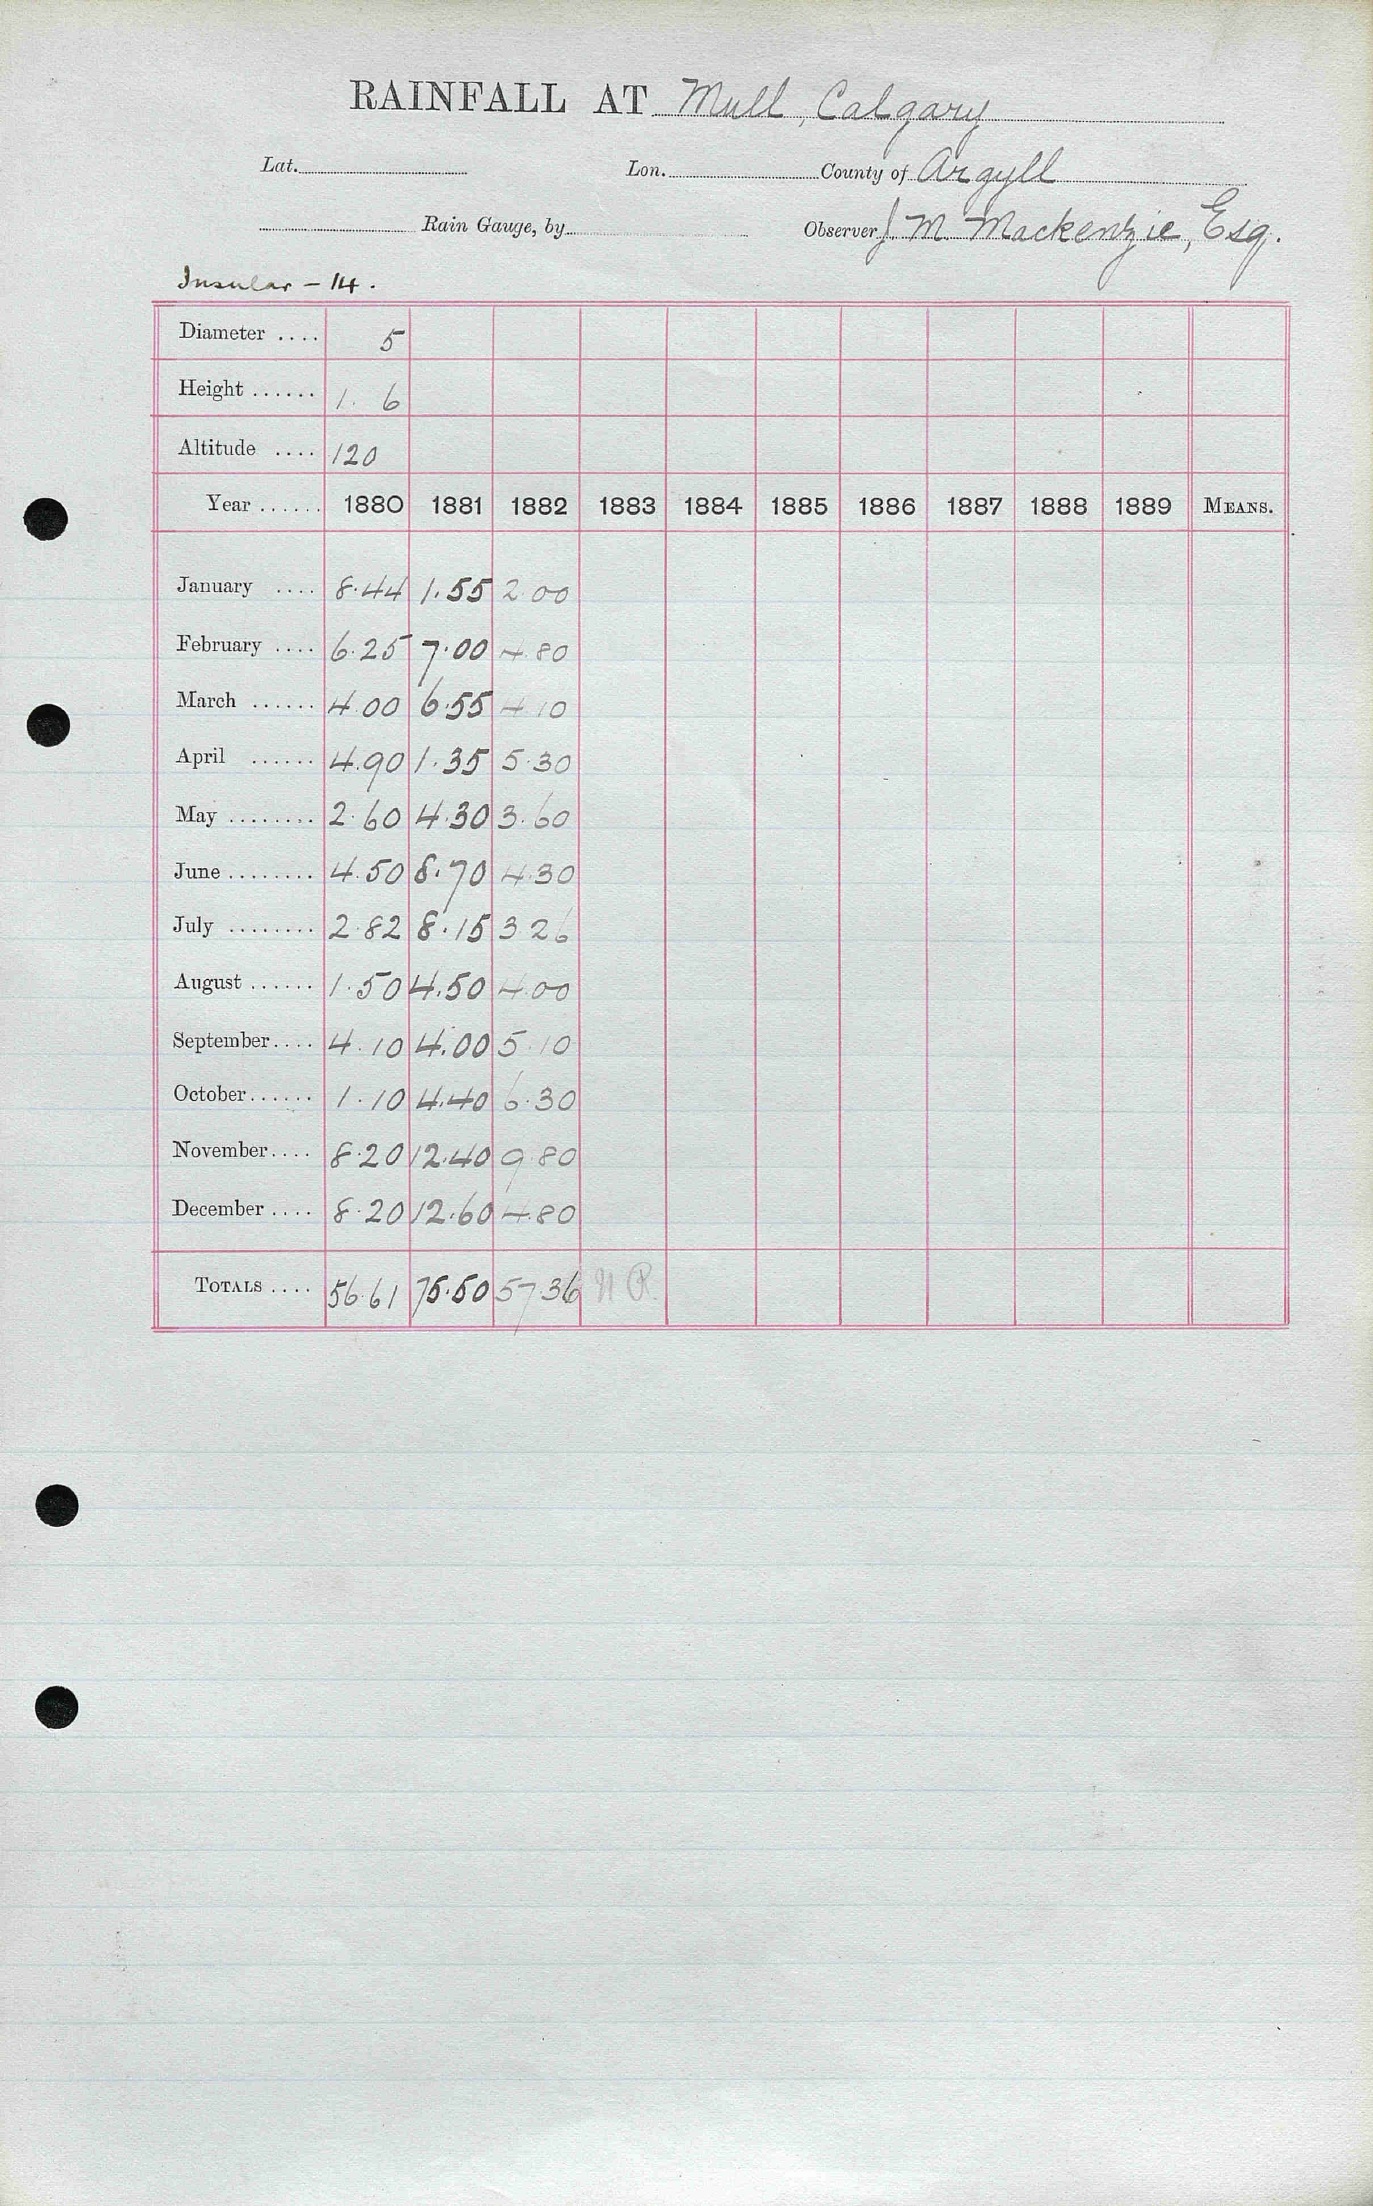 RAINFALL AT Mull, Calgary
Lat. Lon. County of Argyll
Rain Gauge, by Observer J. M. Mackenzie, Esq.
Insular – 14.
Diameter .... 5
Height ...... 1. 6
Altitude .... 120
Year ...... 1880 1881 1882 1883 1884 1885 1886 1887 1888 1889 MEANS.
January .... 8.44 1.55 2.00
February .... 6.25 7.00 4.80
March ...... 4.00 6.55 4.10
April ...... 4.90 1.35 5.30
May ........ 2.60 4.30 3.60
June ........ 4.50 8.70 4.30
July ........ 2.82 8.15 3.26
August ...... 1.50 4.50 4.00
September .... 4.10 4.00 5.10
October ...... 1.10 4.40 6.30
November .... 8.20 12.40 9.80
December .... 8.20 12.60 4.80
TOTALS .... 56.61 75.50 57.36 N R.